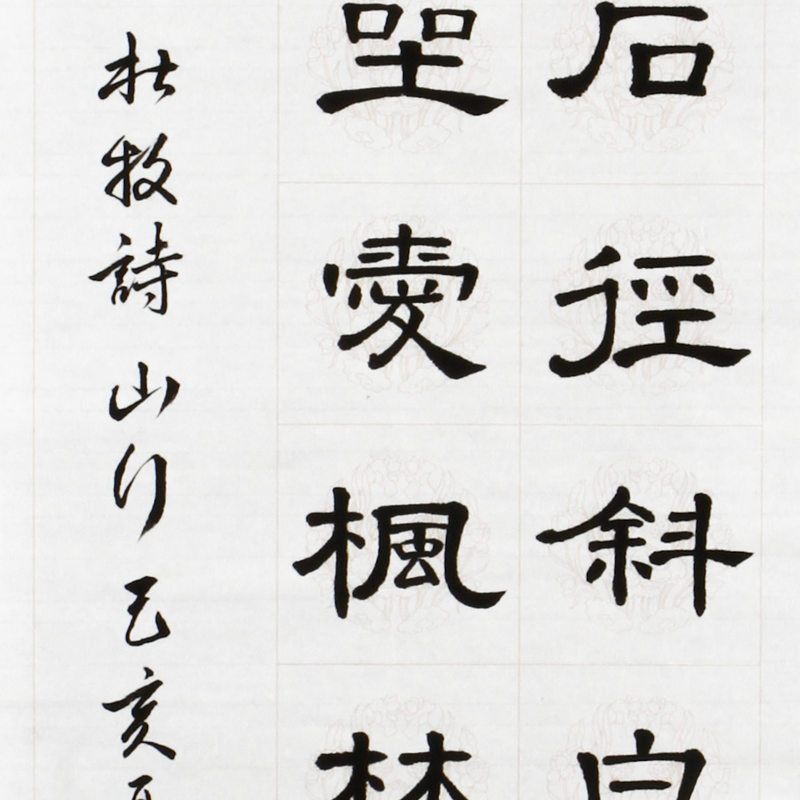 石徑斜白
坐愛楓林
杜牧詩山行己亥